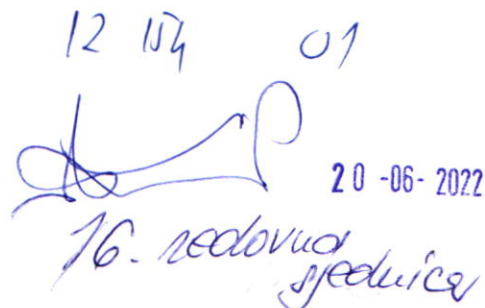 12 154 01
20 -06- 2022
16. redovna
sjednica